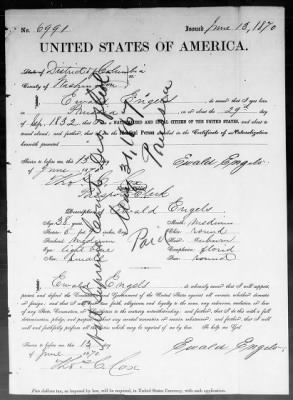 No. 6991 Issued June 13, 1870
UNITED STATES OF AMERICA.
State of District of Columbia
County of Washington
I, Ewald Engels do swear that I was
born in Prussia on or about the 29th
of Sep. 1832 that I am a NATURALIZED AND LOYAL CITIZEN OF THE UNITED STATES, and about to
travel abroad; and further, that I am the Identical Person described in the Certificate of Naturalization
herewith presented.
Sworn to before me this 13th
of June 1870
Ewald Engels
Clerk
Description of Ewald Engels
Age: 38 years Mouth: medium
Stature: 5 feet inches, Eng. Chin: round
Forehead: medium Hair: auburn
Eyes: light Complexion: florid
Nose: small Face: round
Paid
Prussia
I, Ewald Engels do solemnly swear that I will support, protect
and defend the Constitution and Government of the United States against all enemies, whether domestic
or foreign; and that I will bear true faith, allegiance and loyalty to the same, any ordinance, resolution or law
of any State, Convention, or Legislature to the contrary notwithstanding; and further, that I do this with a full
determination, pledge, and purpose, without any mental reservation or evasion whatsoever; and further, that I will
well and faithfully perform all the duties which may be required of me by law. So help me God
Sworn to before me, this 13th
of June 1870
Ewald Engels
Tho. C. Cox
Five dollars tax, as imposed by law, will be required, in United States Currency, with each application.